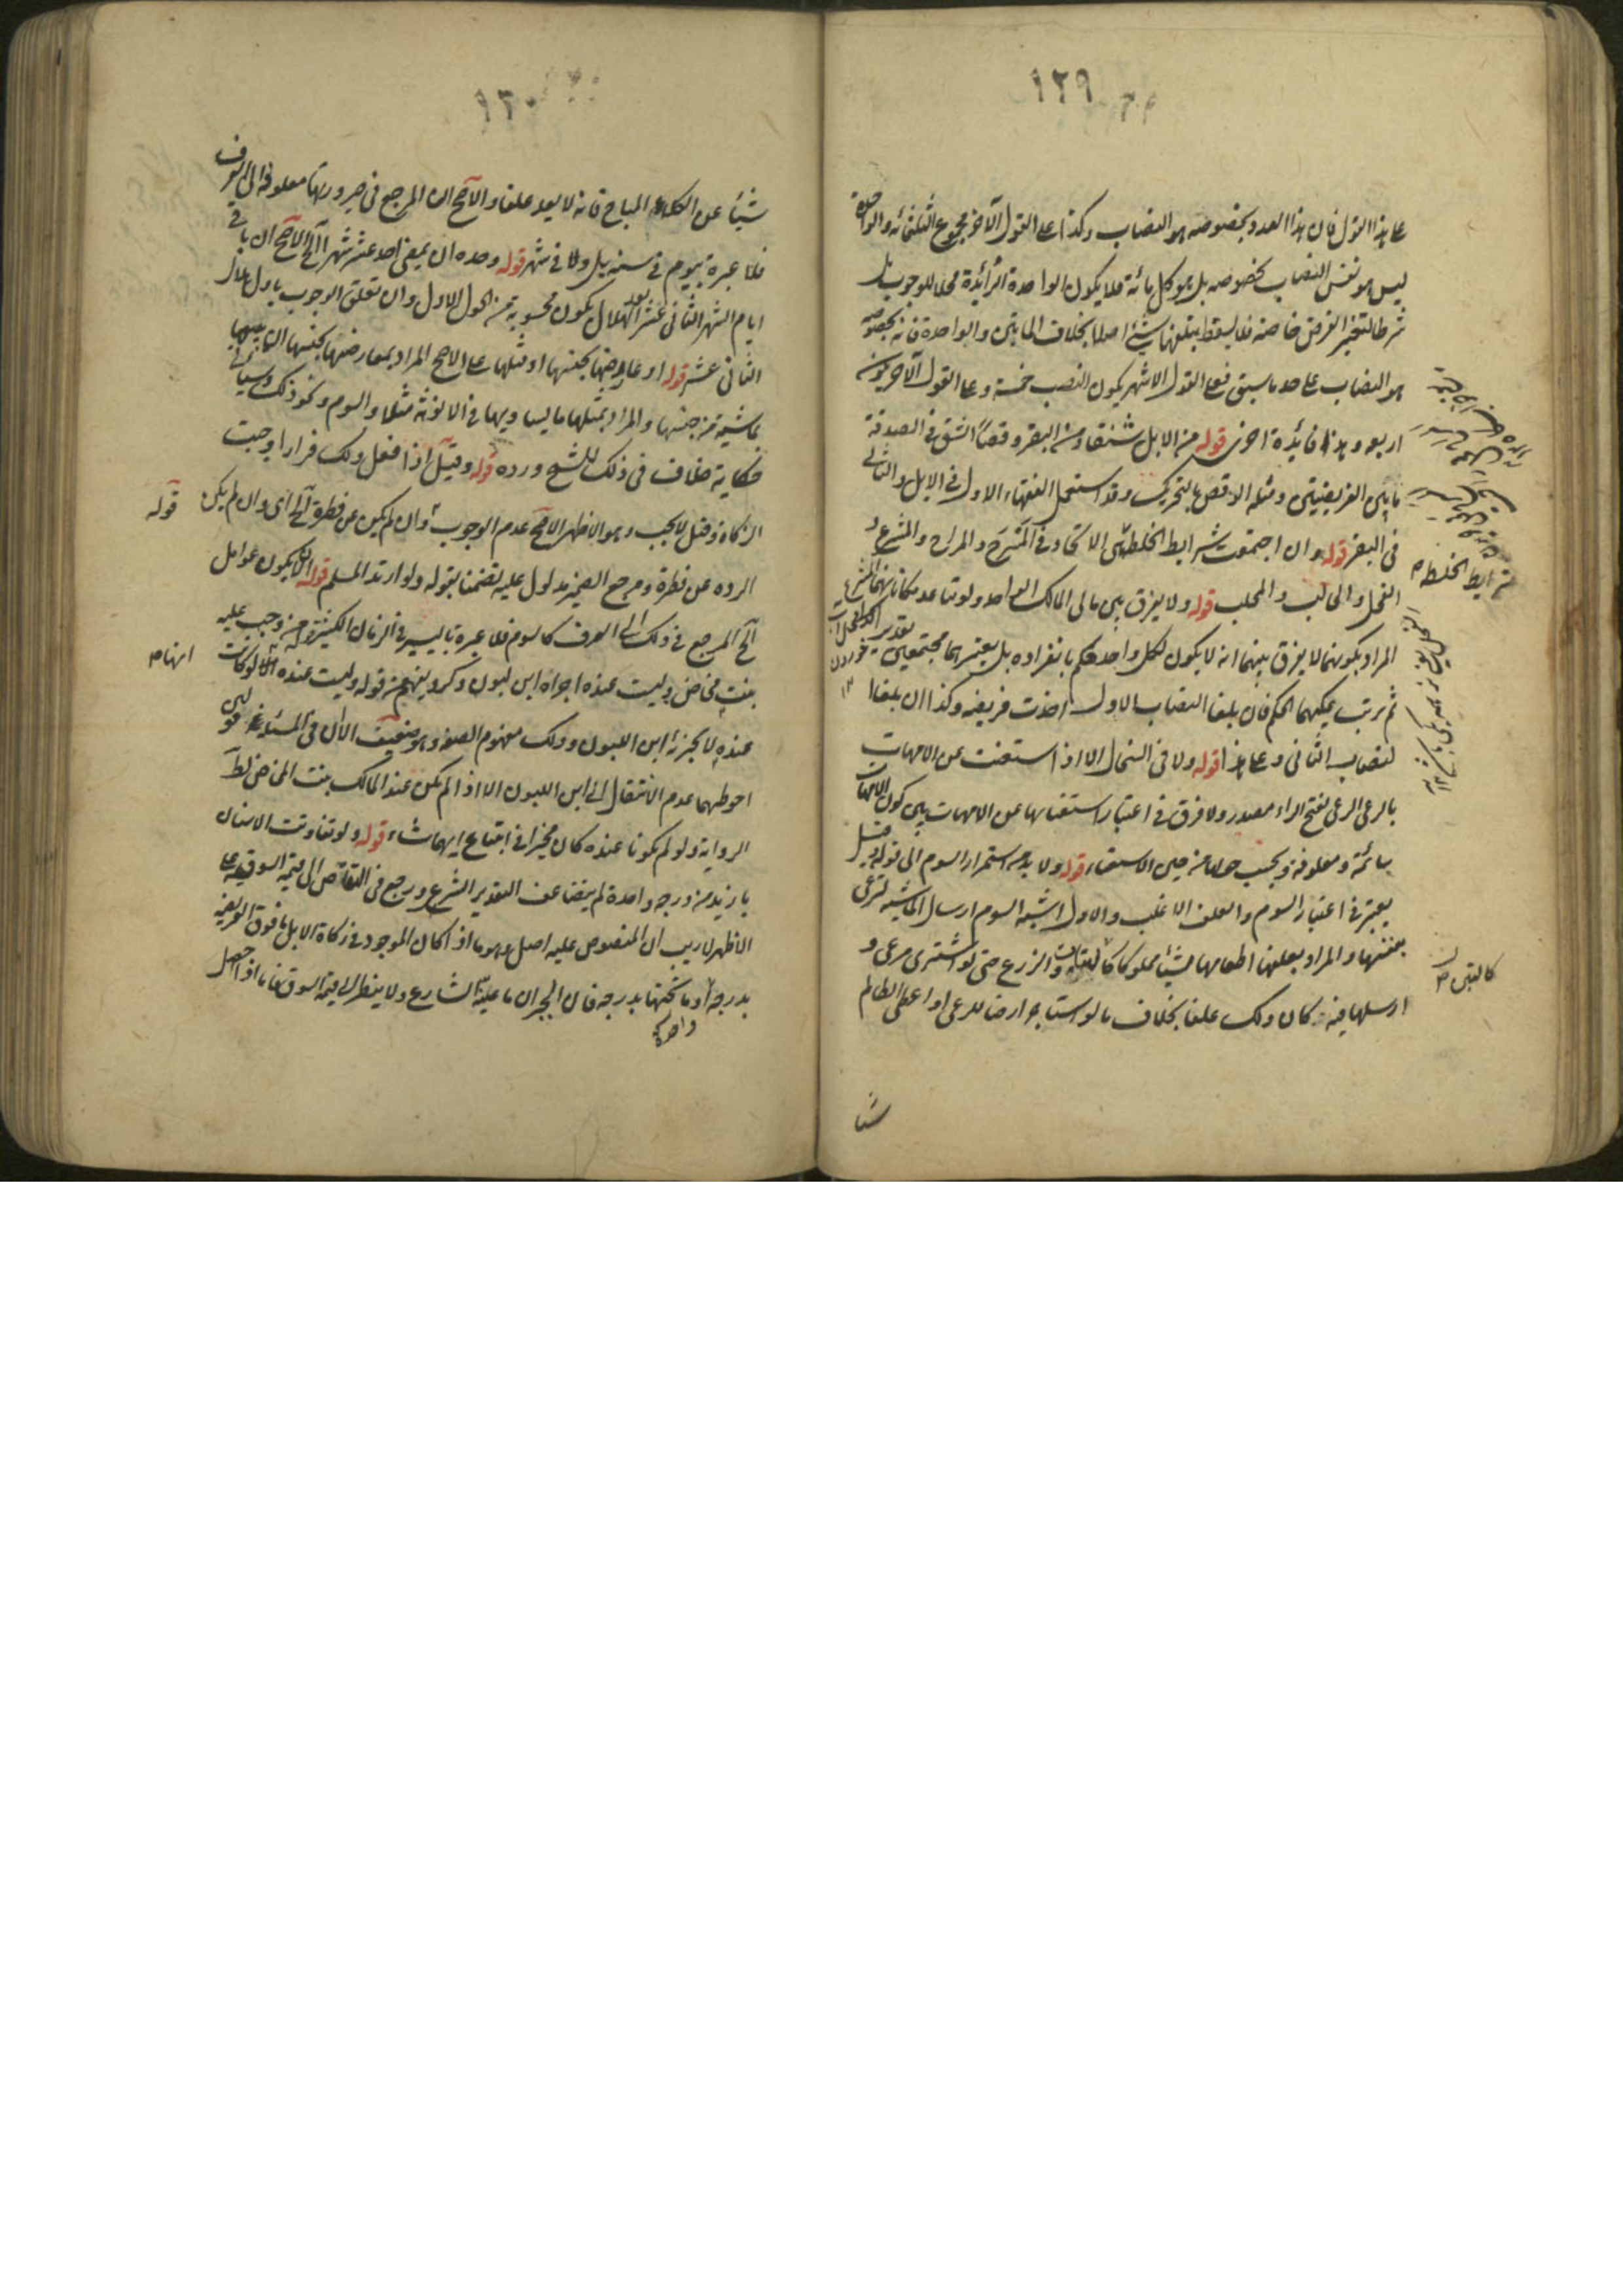 ١٢٩
على هذا القول فان هذا العدد بخصوصه هو النصاب وكذا على القول الآخر مجموع الثلثمائة والواحدة
ليس هو نفس النصاب بخصوصه بل هو كل مائة فلا يكون الواحدة الزائدة محلا للوجوب بل
شرطا لتغير الفرض خاصة فلا يسقط بتلفها شيء اصلا بخلاف المايتين والواحدة فانه بخصوصه
هو النصاب على حد ما سبق فعلى القول الاشهر يكون النصب خمسة وعلى القول الآخر يكون
اربعة وهذا فايدة اخرى قوله من الابل شنقا ومن البقر وقصا الشنق في الصدقة
ما بين الفريضتين ومثله الوقص بالتحريك وقد استعمل الفقهاء الاول في الابل والثاني
في البقر قوله وان اجتمعت شرايط الخلطة هي الاتحاد في المسرح والمراح والمشرع و
الفحل والحالب والمحلب قوله ولا يفرق بين مالي المالك الواحد ولو تباعد مكاناهما
المراد بكونهما لا يفرق بينهما انه لا يكون لكل واحد حكم بانفراده بل يعتبر هما مجتمعين
ثم يرتب عليهما الحكم فان بلغا النصاب الاول اخذت فريضه وكذا ان بلغا
لنصاب الثاني وعلى هذا قوله ولا في السخال الا اذا استغنت عن الامهات
بالرعي الرعي بفتح الراء مصدر ولا فرق في اعتبار استغنائها عن الامهات بين كون الامهات
سائمة ومعلوفة ويحسب حولها من حين الاستغناء قوله ولا بد من استمرار السوم الى قوله وقيل
يعتبر في اعتبار السوم والعلف الاغلب والاول اشبه السوم ارسال الماشية لترعى
بنفسها والمراد بعلفها اطعامها شيئا مملوكا والزرع حتى لو اشترى مرعى و
ارسلها فيه كان ذلك علفا بخلاف ما لو استاجر ارضا للرعي او اعطى الظالم
شيئا
شرايط الخلطة ص
كالتبن ص
١٣٠
شيئا عن الكلاء المباح فانه لا يعد علفا والاصح ان المرجع في صيرورتها معلوفة الى العرف
فلا عبرة بيوم في سنة بل ولا في شهر قوله وحده ان يمضي احد عشر شهرا الخ الاصح ان باقي
ايام الشهر الثاني عشر الهلال يكون محسوبة من الحول الاول وان تعلق الوجوب باول هلال
الثاني عشر قوله او عاوضها بجنسها او مثلها على الاصح المراد بمعاوضتها بجنسها
ماشية من جنسها والمراد بمثلها ما يساويها في الانوثة مثلا والسوم ونحو ذلك وسياتي
حكاية خلاف في ذلك للشيخ ورده قوله وقيل اذا فعل ذلك فرارا وجبت
الزكاة وقيل لا يجب وهو الاظهر الاصح عدم الوجوب وان لم يكن عن فطرة الخ اي وان لم يكن
الردة عن فطرة ومرجع الضمير مدلول عليه تضمنا بقوله ولو ارتد المسلم قوله الا يكون عوامل
الخ المرجع في ذلك الى العرف كالسوم فلا عبرة باليسير في الزمان الكثير قوله من وجب عليه
بنت مخاض وليست عنده اجزاه ابن لبون ذكر ويفهم من قوله وليست عنده انها لو كانت
عنده لا يجزئه ابن اللبون وذلك مفهوم الصفة وهو ضعيف الا ان في المسئلة قولين
احوطهما عدم الانتقال الى ابن اللبون الا اذا لم يكن عند المالك بنت المخاض لظاهر
الرواية ولو لم يكونا عنده كان مخيرا في ابتياع ايهما شاء قوله ولو تفاوتت الاسنان
بازيد من درجة واحدة لم يتضاعف التقدير الشرعي ورجع في التقاص الى قيمة السوقية على
الاظهر لا ريب ان المنصوص عليه اصل وهو ما اذا كان الموجود في زكاة الابل ما فوق الفريضة
بدرجة او ما تحتها بدرجة فان الجبران ما عينه الشارع ولا ينظر الى قيمة السوق فاما اذا حصل
واحدة
قوله
انها ص